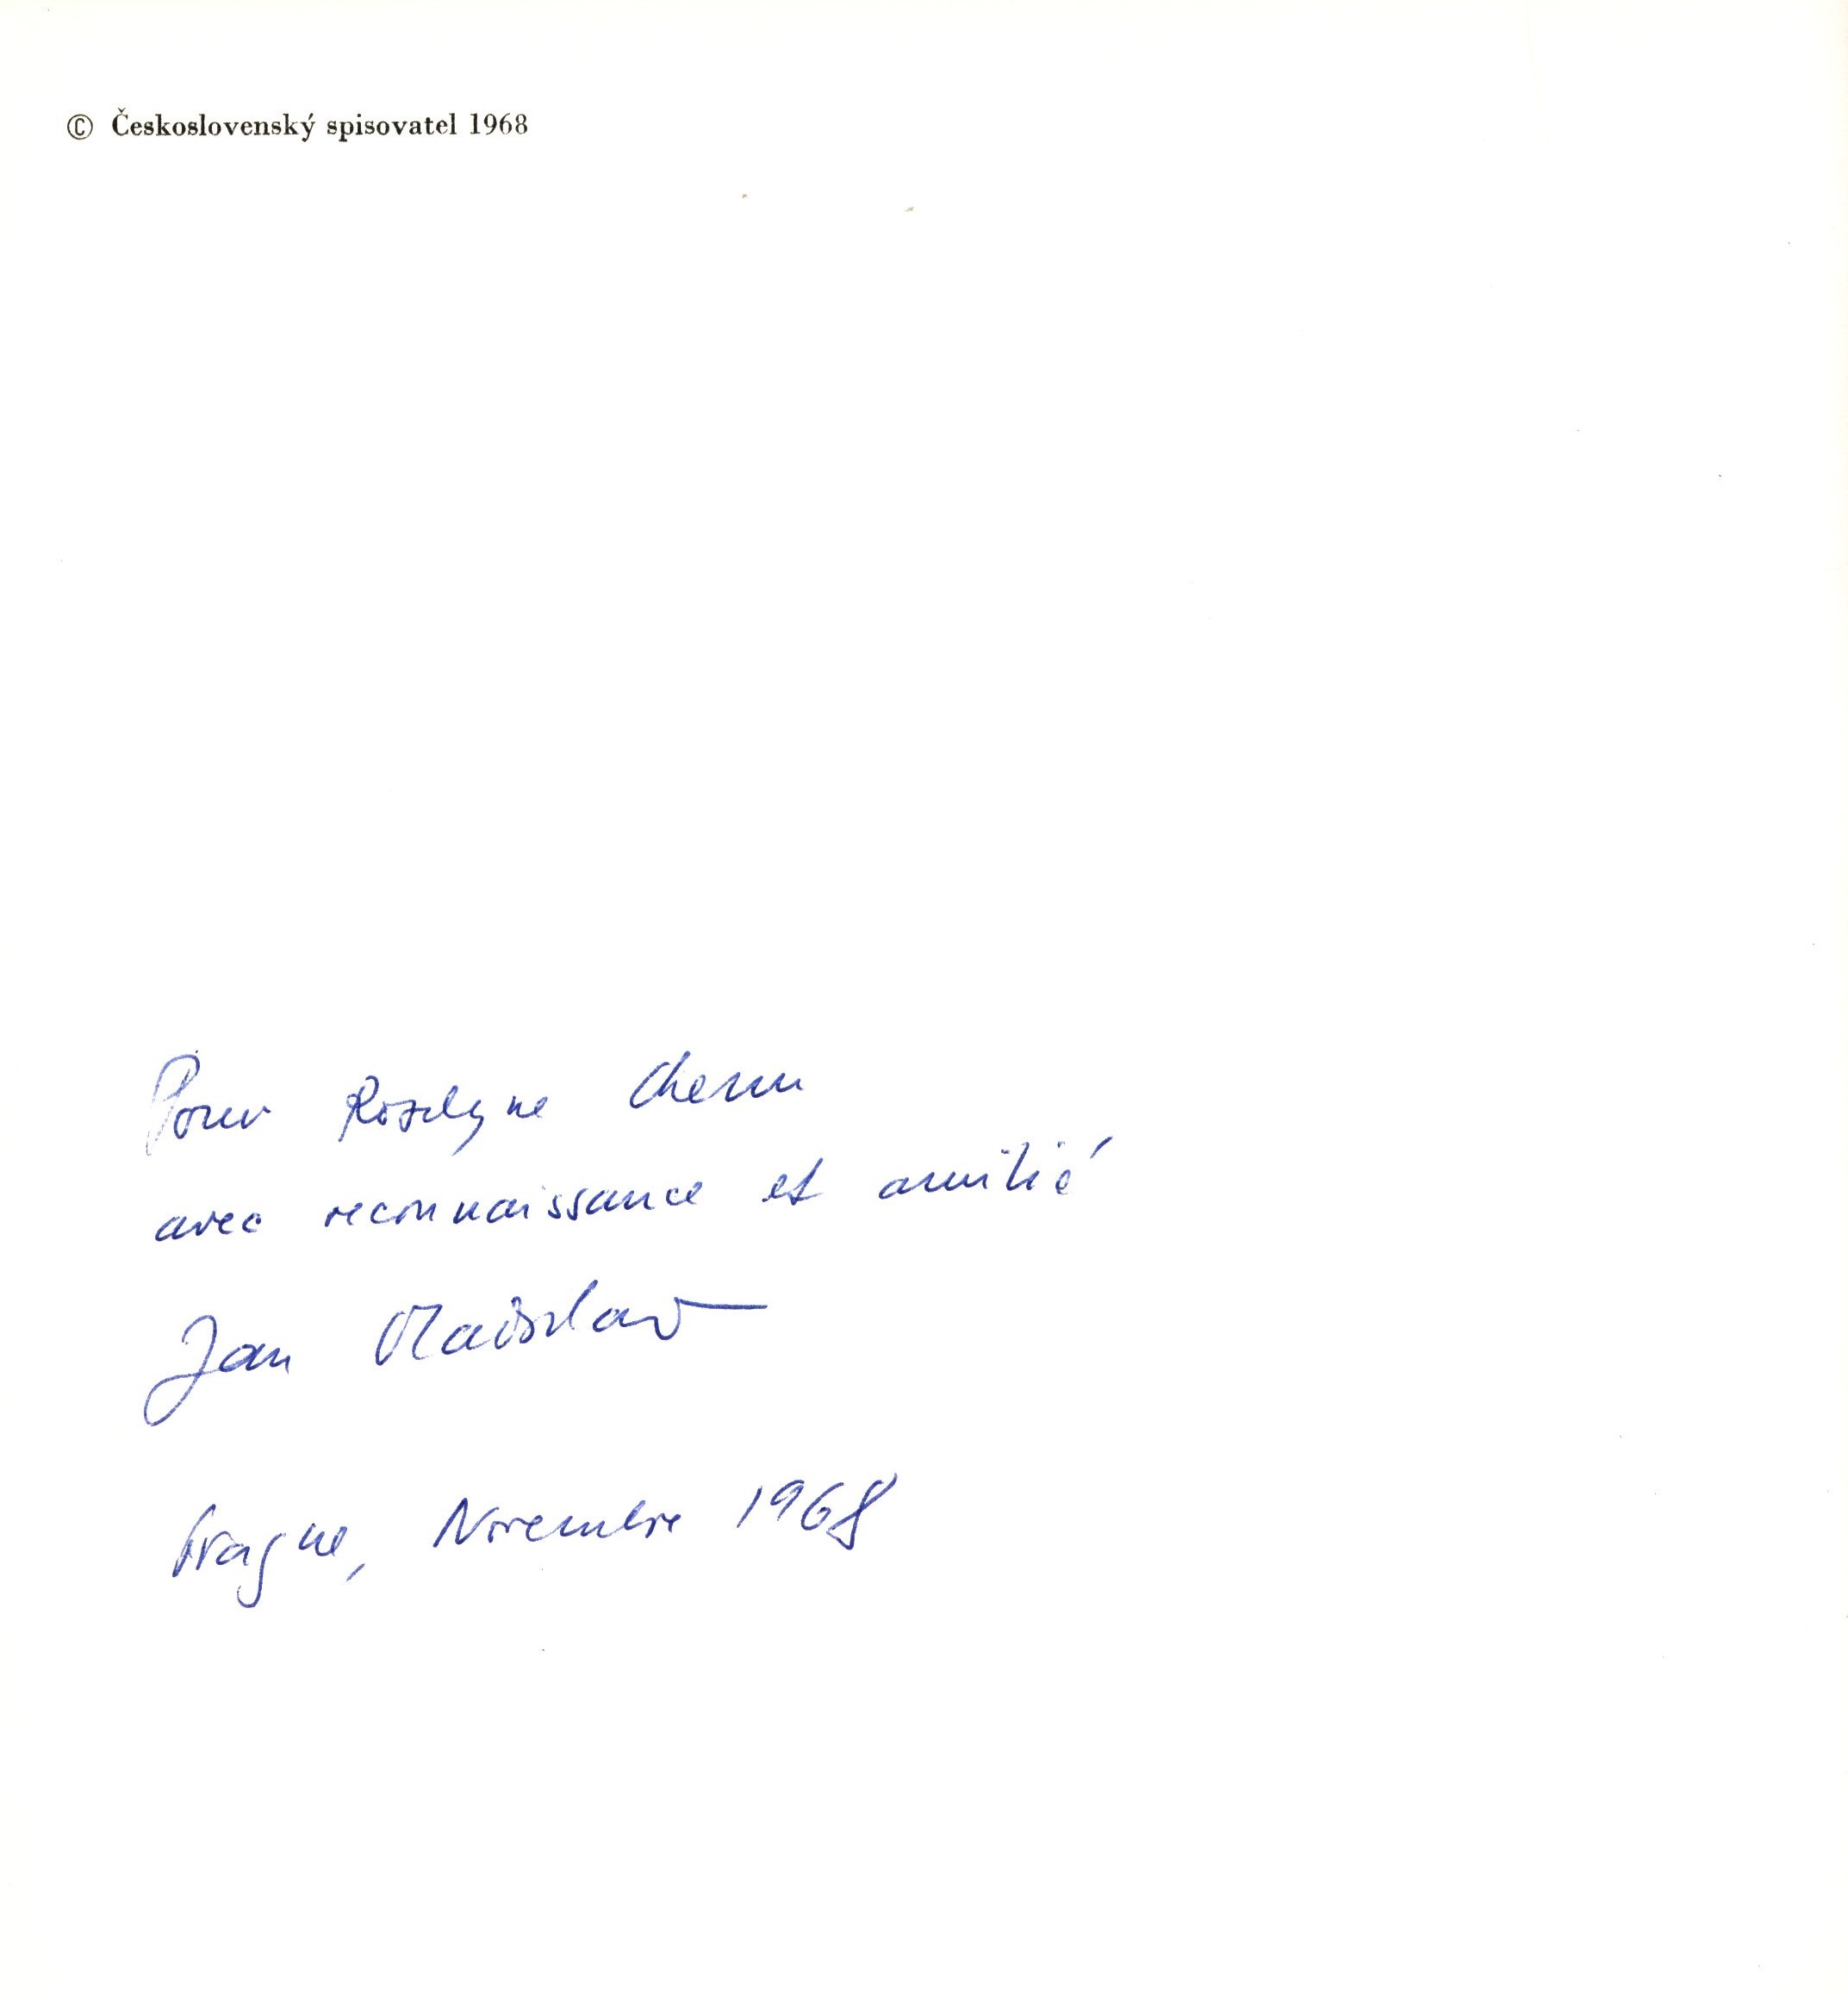 © Československý spisovatel 1968
Pour Roselyne Chenu
avec reconnaissance et amitié
Jan Vladislav
Prague, Novembre 1968